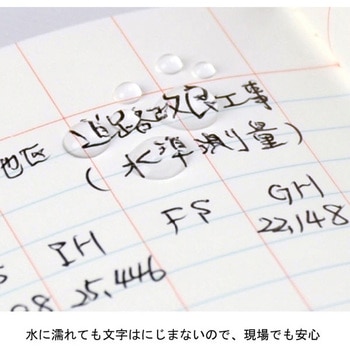 地区 道路改良工事
(水準測量)
IH FS GH
25.446 22.148
水に濡れても文字はにじまないので、現場でも安心